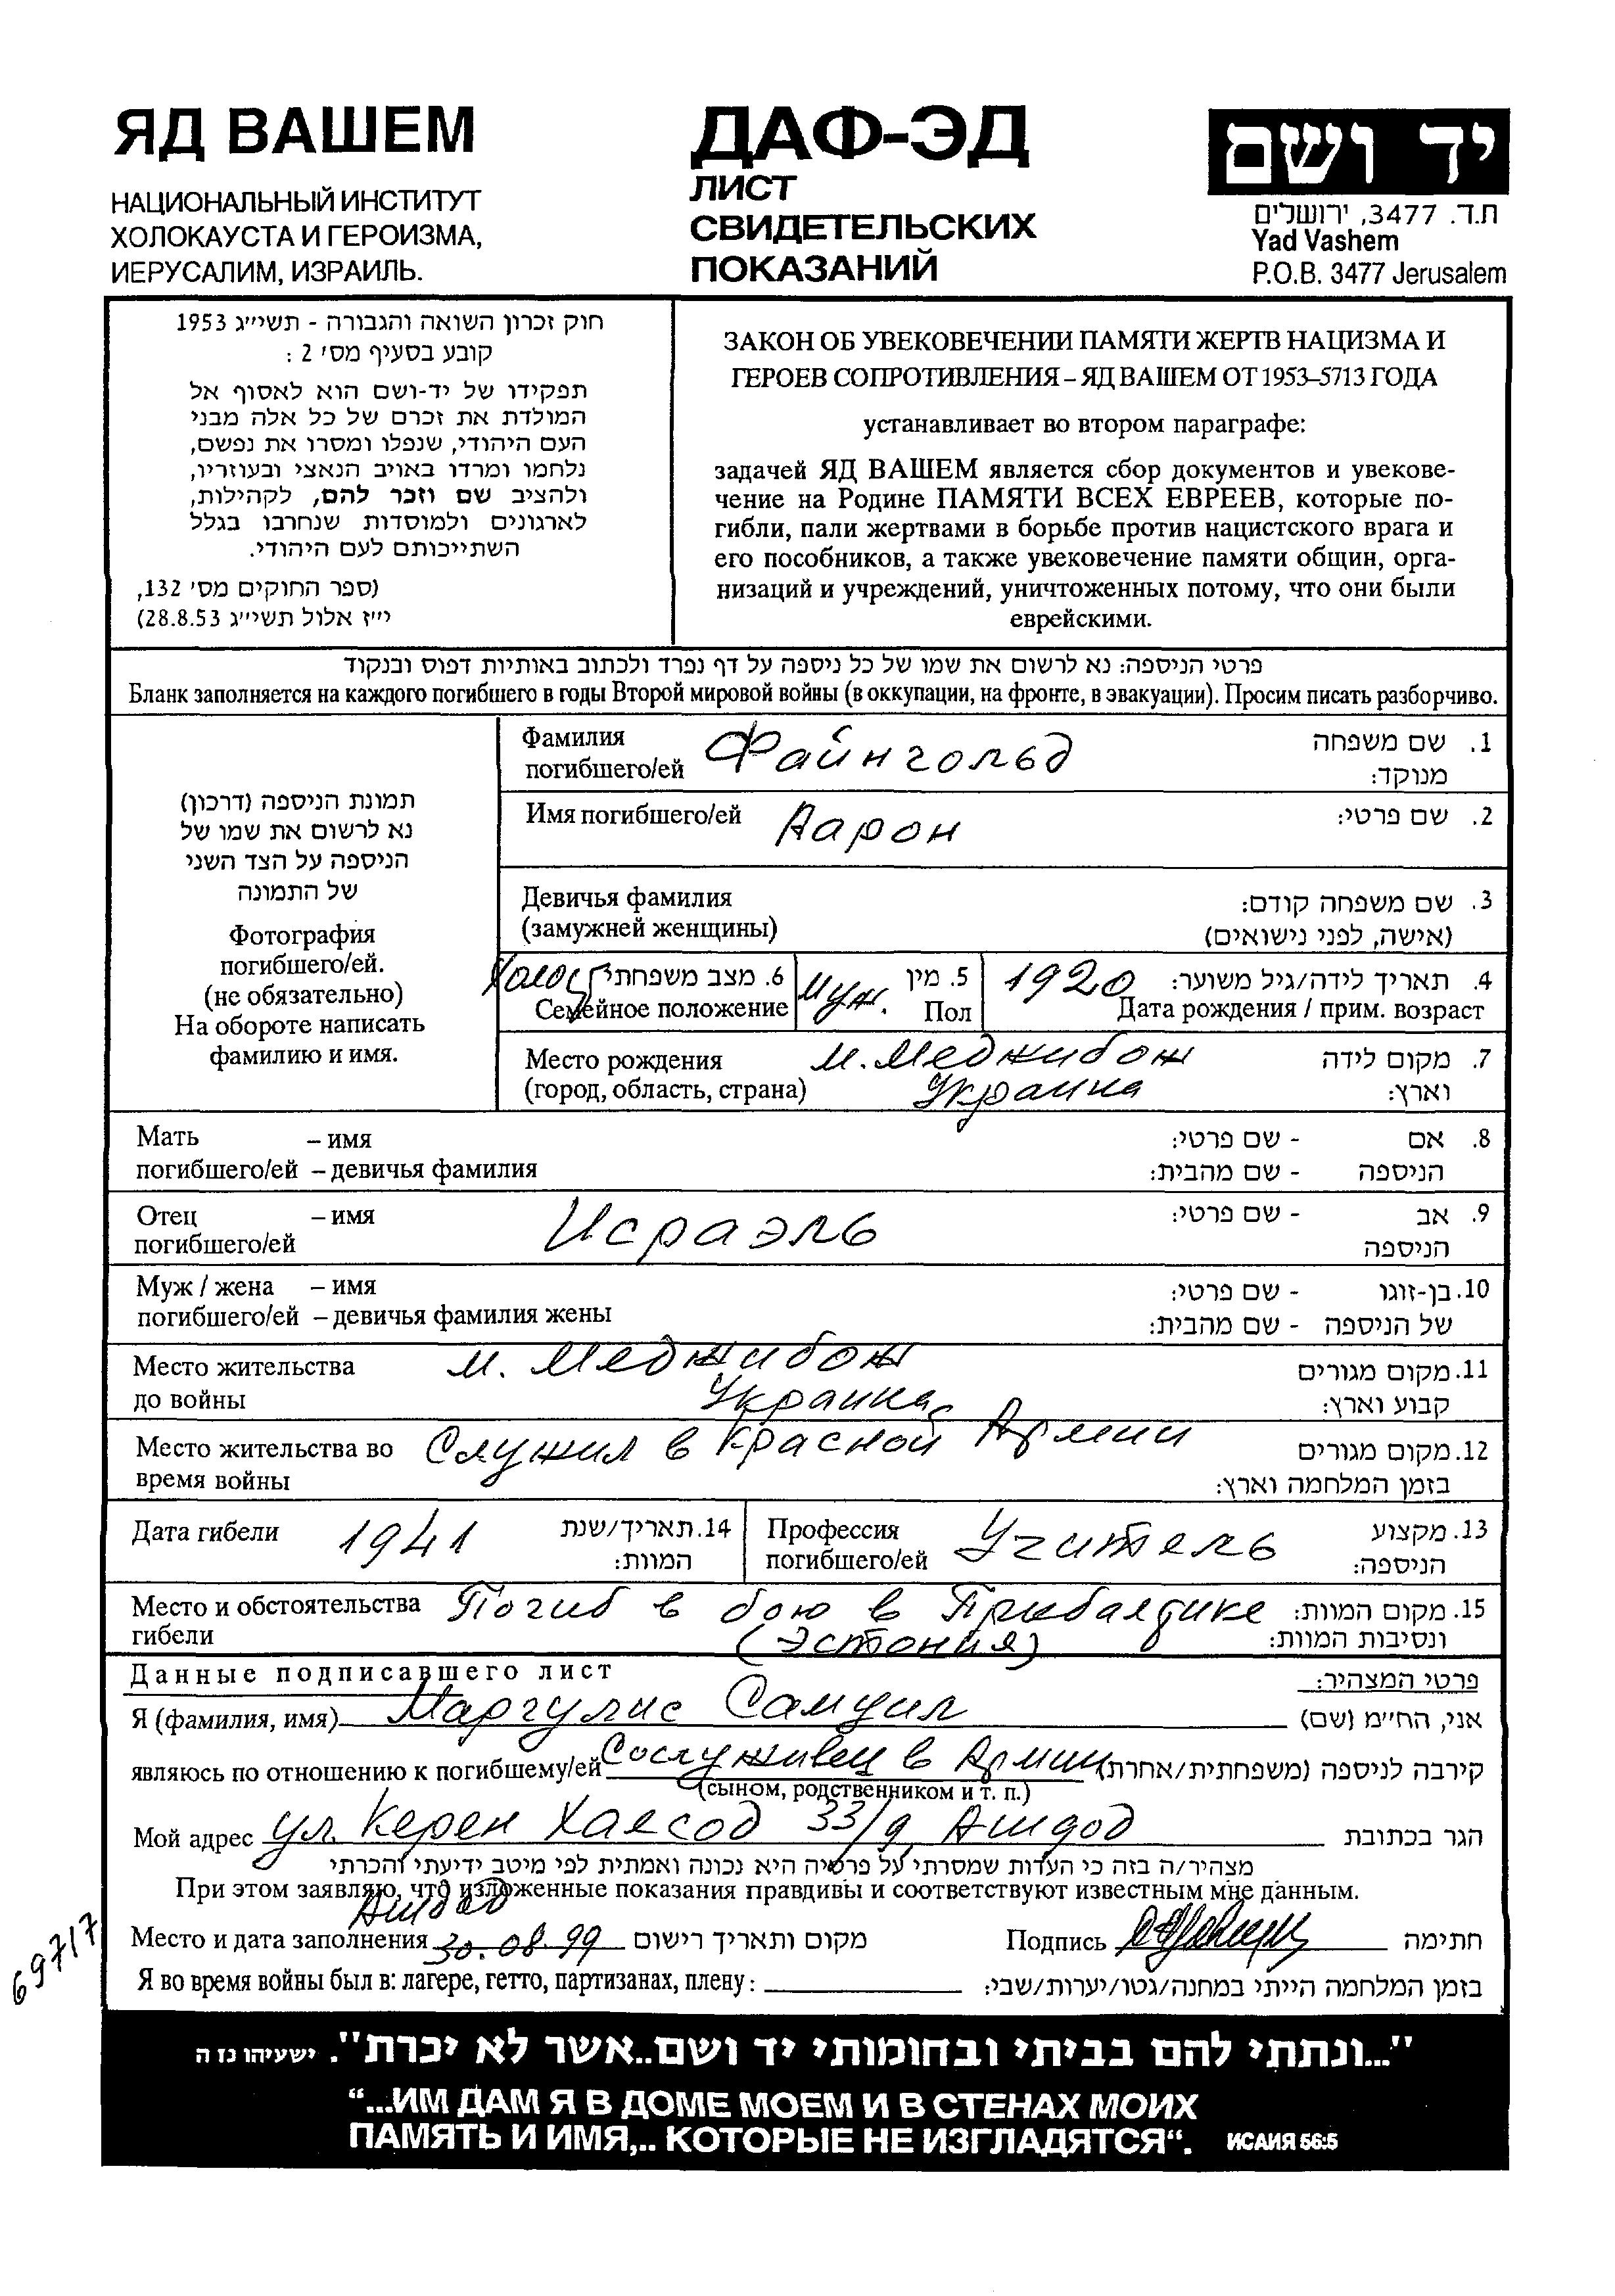 ЯД ВАШЕМ
НАЦИОНАЛЬНЫЙ ИНСТИТУТ
ХОЛОКАУСТА И ГЕРОИЗМА,
ИЕРУСАЛИМ, ИЗРАИЛЬ.
ДАФ-ЭД
ЛИСТ
СВИДЕТЕЛЬСКИХ
ПОКАЗАНИЙ
יד ושם
ת.ד. 3477, ירושלים
Yad Vashem
P.O.B. 3477 Jerusalem
חוק זכרון השואה והגבורה - תשי״ג 1953
קובע בסעיף מס׳ 2 :
תפקידו של יד-ושם הוא לאסוף אל
המולדת את זכרם של כל אלה מבני
העם היהודי, שנפלו ומסרו את נפשם,
נלחמו ומרדו באויב הנאצי ובעוזריו,
ולהציב שם וזכר להם, לקהילות,
לארגונים ולמוסדות שנחרבו בגלל
השתייכותם לעם היהודי.
(ספר החוקים מס׳ 132,
י״ז אלול תשי״ג 28.8.53)
ЗАКОН ОБ УВЕКОВЕЧЕНИИ ПАМЯТИ ЖЕРТВ НАЦИЗМА И
ГЕРОЕВ СОПРОТИВЛЕНИЯ – ЯД ВАШЕМ ОТ 1953–5713 ГОДА
устанавливает во втором параграфе:
задачей ЯД ВАШЕМ является сбор документов и увекове-
чение на Родине ПАМЯТИ ВСЕХ ЕВРЕЕВ, которые по-
гибли, пали жертвами в борьбе против нацистского врага и
его пособников, а также увековечение памяти общин, орга-
низаций и учреждений, уничтоженных потому, что они были
еврейскими.
פרטי הניספה: נא לרשום את שמו של כל ניספה על דף נפרד ולכתוב באותיות דפוס ובנקוד
Бланк заполняется на каждого погибшего в годы Второй мировой войны (в оккупации, на фронте, в эвакуации). Просим писать разборчиво.
תמונת הניספה (דרכון)
נא לרשום את שמו של
הניספה על הצד השני
של התמונה
Фотография
погибшего/ей.
(не обязательно)
На обороте написать
фамилию и имя.
Фамилия погибшего/ей Файнгольд 1. שם משפחה
מנוקד:
Имя погибшего/ей Аарон 2. שם פרטי:
Девичья фамилия 3. שם משפחה קודם:
(замужней женщины) (אישה, לפני נישואים)
Холост 6. מצב משפחתי муж. 5. מין 1920 4. תאריך לידה/גיל משוער:
Семейное положение Пол Дата рождения / прим. возраст
Место рождения м. Меджибож 7. מקום לידה
(город, область, страна) Украина וארץ:
Мать – имя 8. אם - שם פרטי:
погибшего/ей – девичья фамилия הניספה - שם מהבית:
Отец – имя Исраэль 9. אב - שם פרטי:
погибшего/ей הניספה
Муж / жена – имя 10. בן-זוגו - שם פרטי:
погибшего/ей – девичья фамилия жены של הניספה - שם מהבית:
Место жительства м. Меджибож 11. מקום מגורים
до войны Украина קבוע וארץ:
Место жительства во Служил в Красной Армии 12. מקום מגורים
время войны בזמן המלחמה וארץ:
Дата гибели 1941 14. תאריך/שנת
המוות:
Профессия Учитель 13. מקצוע
погибшего/ей הניספה:
Место и обстоятельства Погиб в бою в Прибалтике 15. מקום המוות:
гибели (Эстония) ונסיבות המוות:
Данные подписавшего лист פרטי המצהיר:
Я (фамилия, имя) Маргулис Самуил אני, הח״מ (שם)
являюсь по отношению к погибшему/ей Сослуживец в Армии קירבה לניספה (משפחתית/אחרת)
(сыном, родственником и т. п.)
Мой адрес ул. Керен Хаесод 33/9, Ашдод הגר בכתובת
מצהיר/ה בזה כי העדות שמסרתי על פרטיה היא נכונה ואמתית לפי מיטב ידיעתי והכרתי
При этом заявляю, что изложенные показания правдивы и соответствуют известным мне данным.
Ашдод
Место и дата заполнения 30.08.99 מקום ותאריך רישום Подпись חתימה
Я во время войны был в: лагере, гетто, партизанах, плену: בזמן המלחמה הייתי במחנה/גטו/יערות/שבי:
69717
"...ונתתי להם בביתי ובחומותי יד ושם..אשר לא יכרת". ישעיהו נז ה
“...ИМ ДАМ Я В ДОМЕ МОЕМ И В СТЕНАХ МОИХ
ПАМЯТЬ И ИМЯ,.. КОТОРЫЕ НЕ ИЗГЛАДЯТСЯ“. ИСАИЯ 56:5